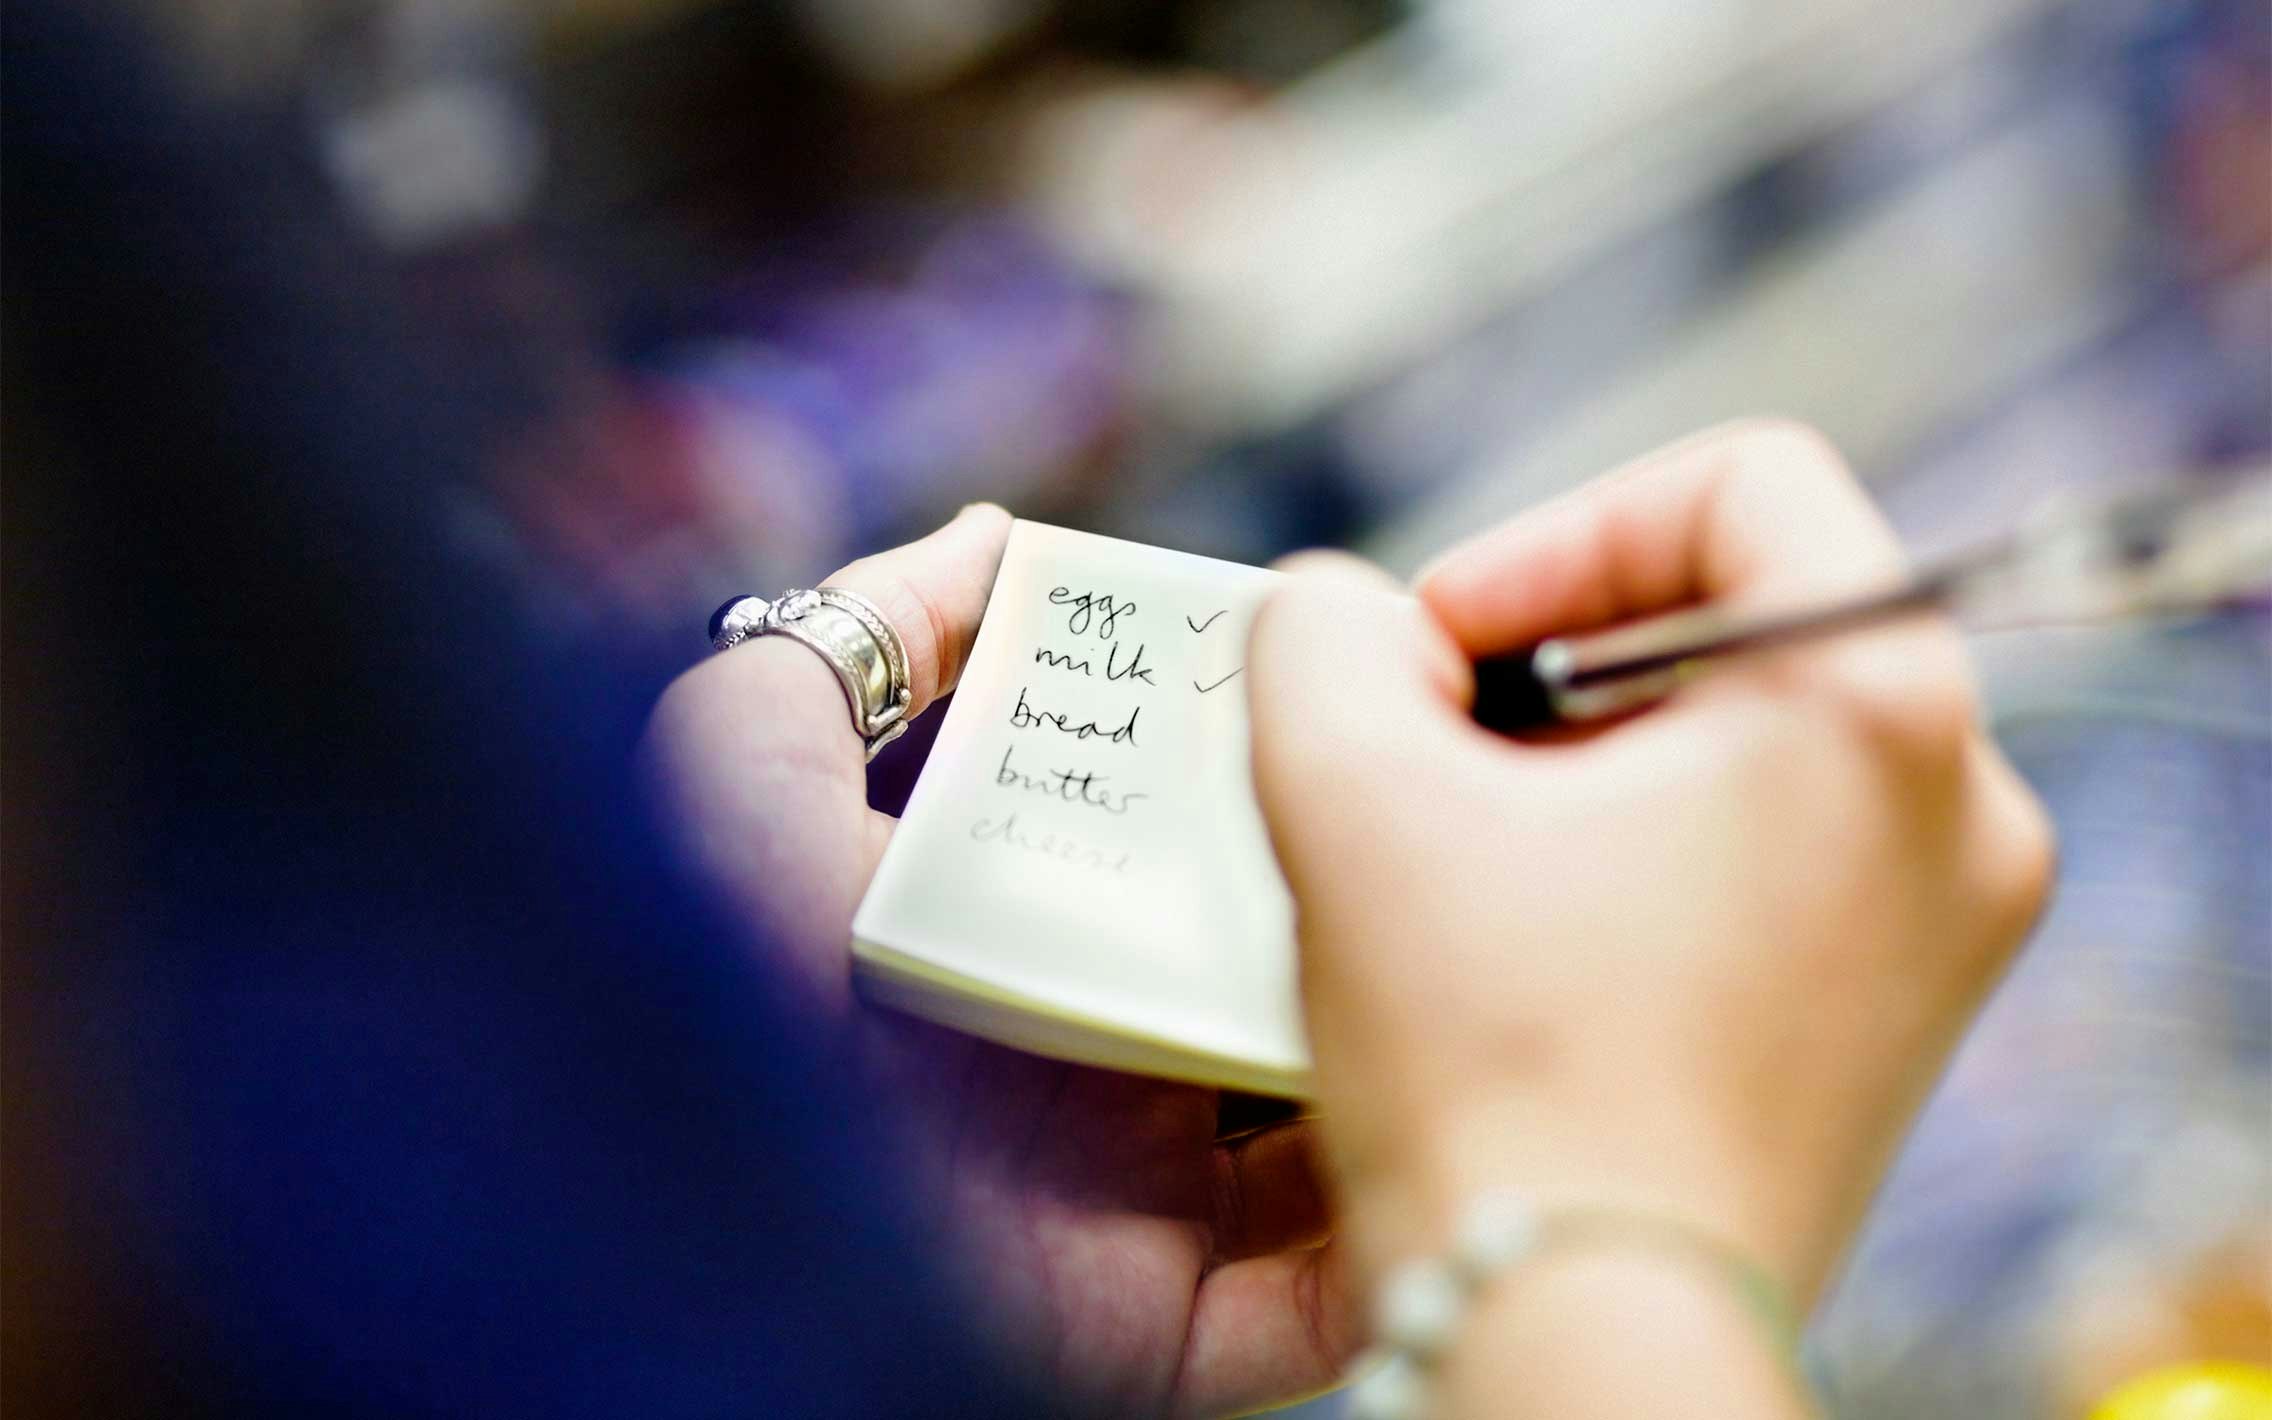 eggs ✓
milk ✓
bread
butter
cheese